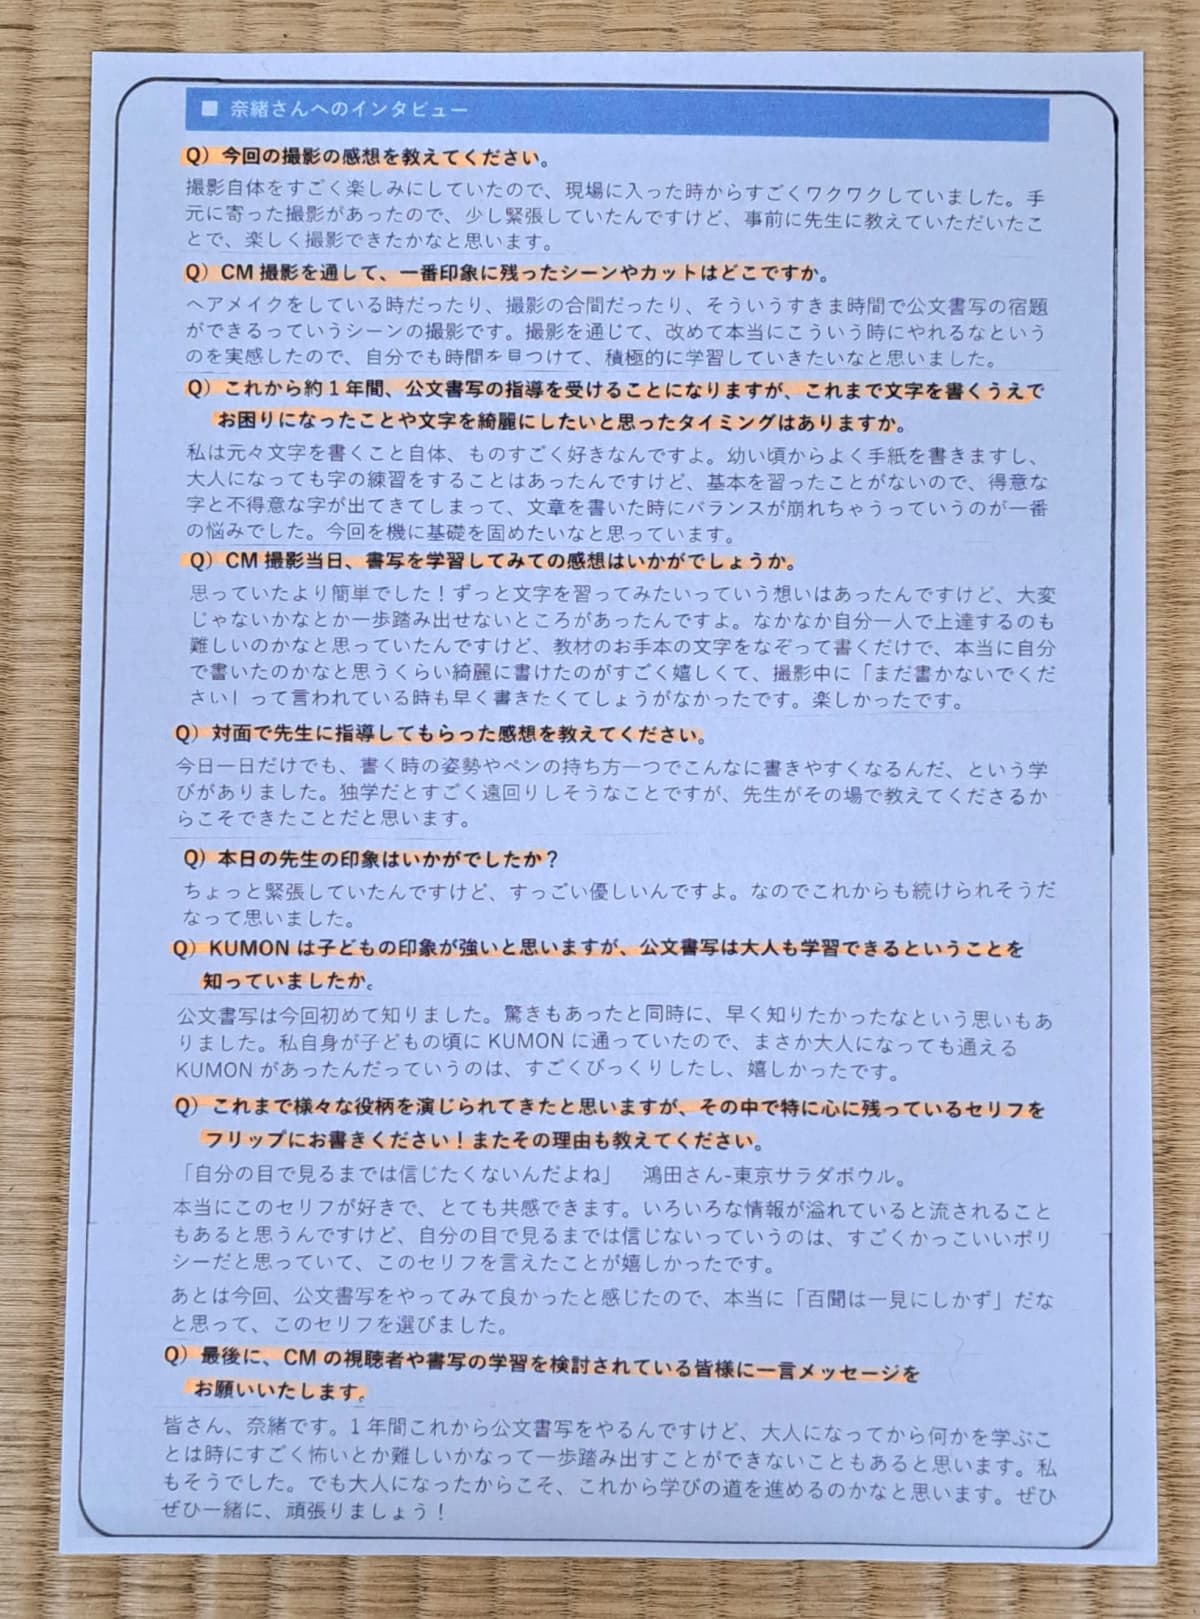 ■ 奈緒さんへのインタビュー
Q）今回の撮影の感想を教えてください。
撮影自体をすごく楽しみにしていたので、現場に入った時からすごくワクワクしていました。手
元に寄った撮影があったので、少し緊張していたんですけど、事前に先生に教えていただいたこ
とで、楽しく撮影できたかなと思います。
Q）CM 撮影を通して、一番印象に残ったシーンやカットはどこですか。
ヘアメイクをしている時だったり、撮影の合間だったり、そういうすきま時間で公文書写の宿題
ができるっていうシーンの撮影です。撮影を通じて、改めて本当にこういう時にやれるなという
のを実感したので、自分でも時間を見つけて、積極的に学習していきたいなと思いました。
Q）これから約１年間、公文書写の指導を受けることになりますが、これまで文字を書くうえで
お困りになったことや文字を綺麗にしたいと思ったタイミングはありますか。
私は元々文字を書くこと自体、ものすごく好きなんですよ。幼い頃からよく手紙を書きますし、
大人になっても字の練習をすることはあったんですけど、基本を習ったことがないので、得意な
字と不得意な字が出てきてしまって、文章を書いた時にバランスが崩れちゃうっていうのが一番
の悩みでした。今回を機に基礎を固めたいなと思っています。
Q）CM 撮影当日、書写を学習してみての感想はいかがでしょうか。
思っていたより簡単でした！ずっと文字を習ってみたいっていう想いはあったんですけど、大変
じゃないかなとか一歩踏み出せないところがあったんですよ。なかなか自分一人で上達するのも
難しいのかなと思っていたんですけど、教材のお手本の文字をなぞって書くだけで、本当に自分
で書いたのかなと思うくらい綺麗に書けたのがすごく嬉しくて、撮影中に「まだ書かないでくだ
さい」って言われている時も早く書きたくてしょうがなかったです。楽しかったです。
Q）対面で先生に指導してもらった感想を教えてください。
今日一日だけでも、書く時の姿勢やペンの持ち方一つでこんなに書きやすくなるんだ、という学
びがありました。独学だとすごく遠回りしそうなことですが、先生がその場で教えてくださるか
らこそできたことだと思います。
Q）本日の先生の印象はいかがでしたか？
ちょっと緊張していたんですけど、すっごい優しいんですよ。なのでこれからも続けられそうだ
なって思いました。
Q）KUMON は子どもの印象が強いと思いますが、公文書写は大人も学習できるということを
知っていましたか。
公文書写は今回初めて知りました。驚きもあったと同時に、早く知りたかったなという思いもあ
りました。私自身が子どもの頃に KUMON に通っていたので、まさか大人になっても通える
KUMON があったんだっていうのは、すごくびっくりしたし、嬉しかったです。
Q）これまで様々な役柄を演じられてきたと思いますが、その中で特に心に残っているセリフを
フリップにお書きください！またその理由も教えてください。
「自分の目で見るまでは信じたくないんだよね」　鴻田さん-東京サラダボウル。
本当にこのセリフが好きで、とても共感できます。いろいろな情報が溢れていると流されること
もあると思うんですけど、自分の目で見るまでは信じないっていうのは、すごくかっこいいポリ
シーだと思っていて、このセリフを言えたことが嬉しかったです。
あとは今回、公文書写をやってみて良かったと感じたので、本当に「百聞は一見にしかず」だな
と思って、このセリフを選びました。
Q）最後に、CM の視聴者や書写の学習を検討されている皆様に一言メッセージを
お願いいたします。
皆さん、奈緒です。１年間これから公文書写をやるんですけど、大人になってから何かを学ぶこ
とは時にすごく怖いとか難しいかなって一歩踏み出すことができないこともあると思います。私
もそうでした。でも大人になったからこそ、これから学びの道を進めるのかなと思います。ぜひ
ぜひ一緒に、頑張りましょう！